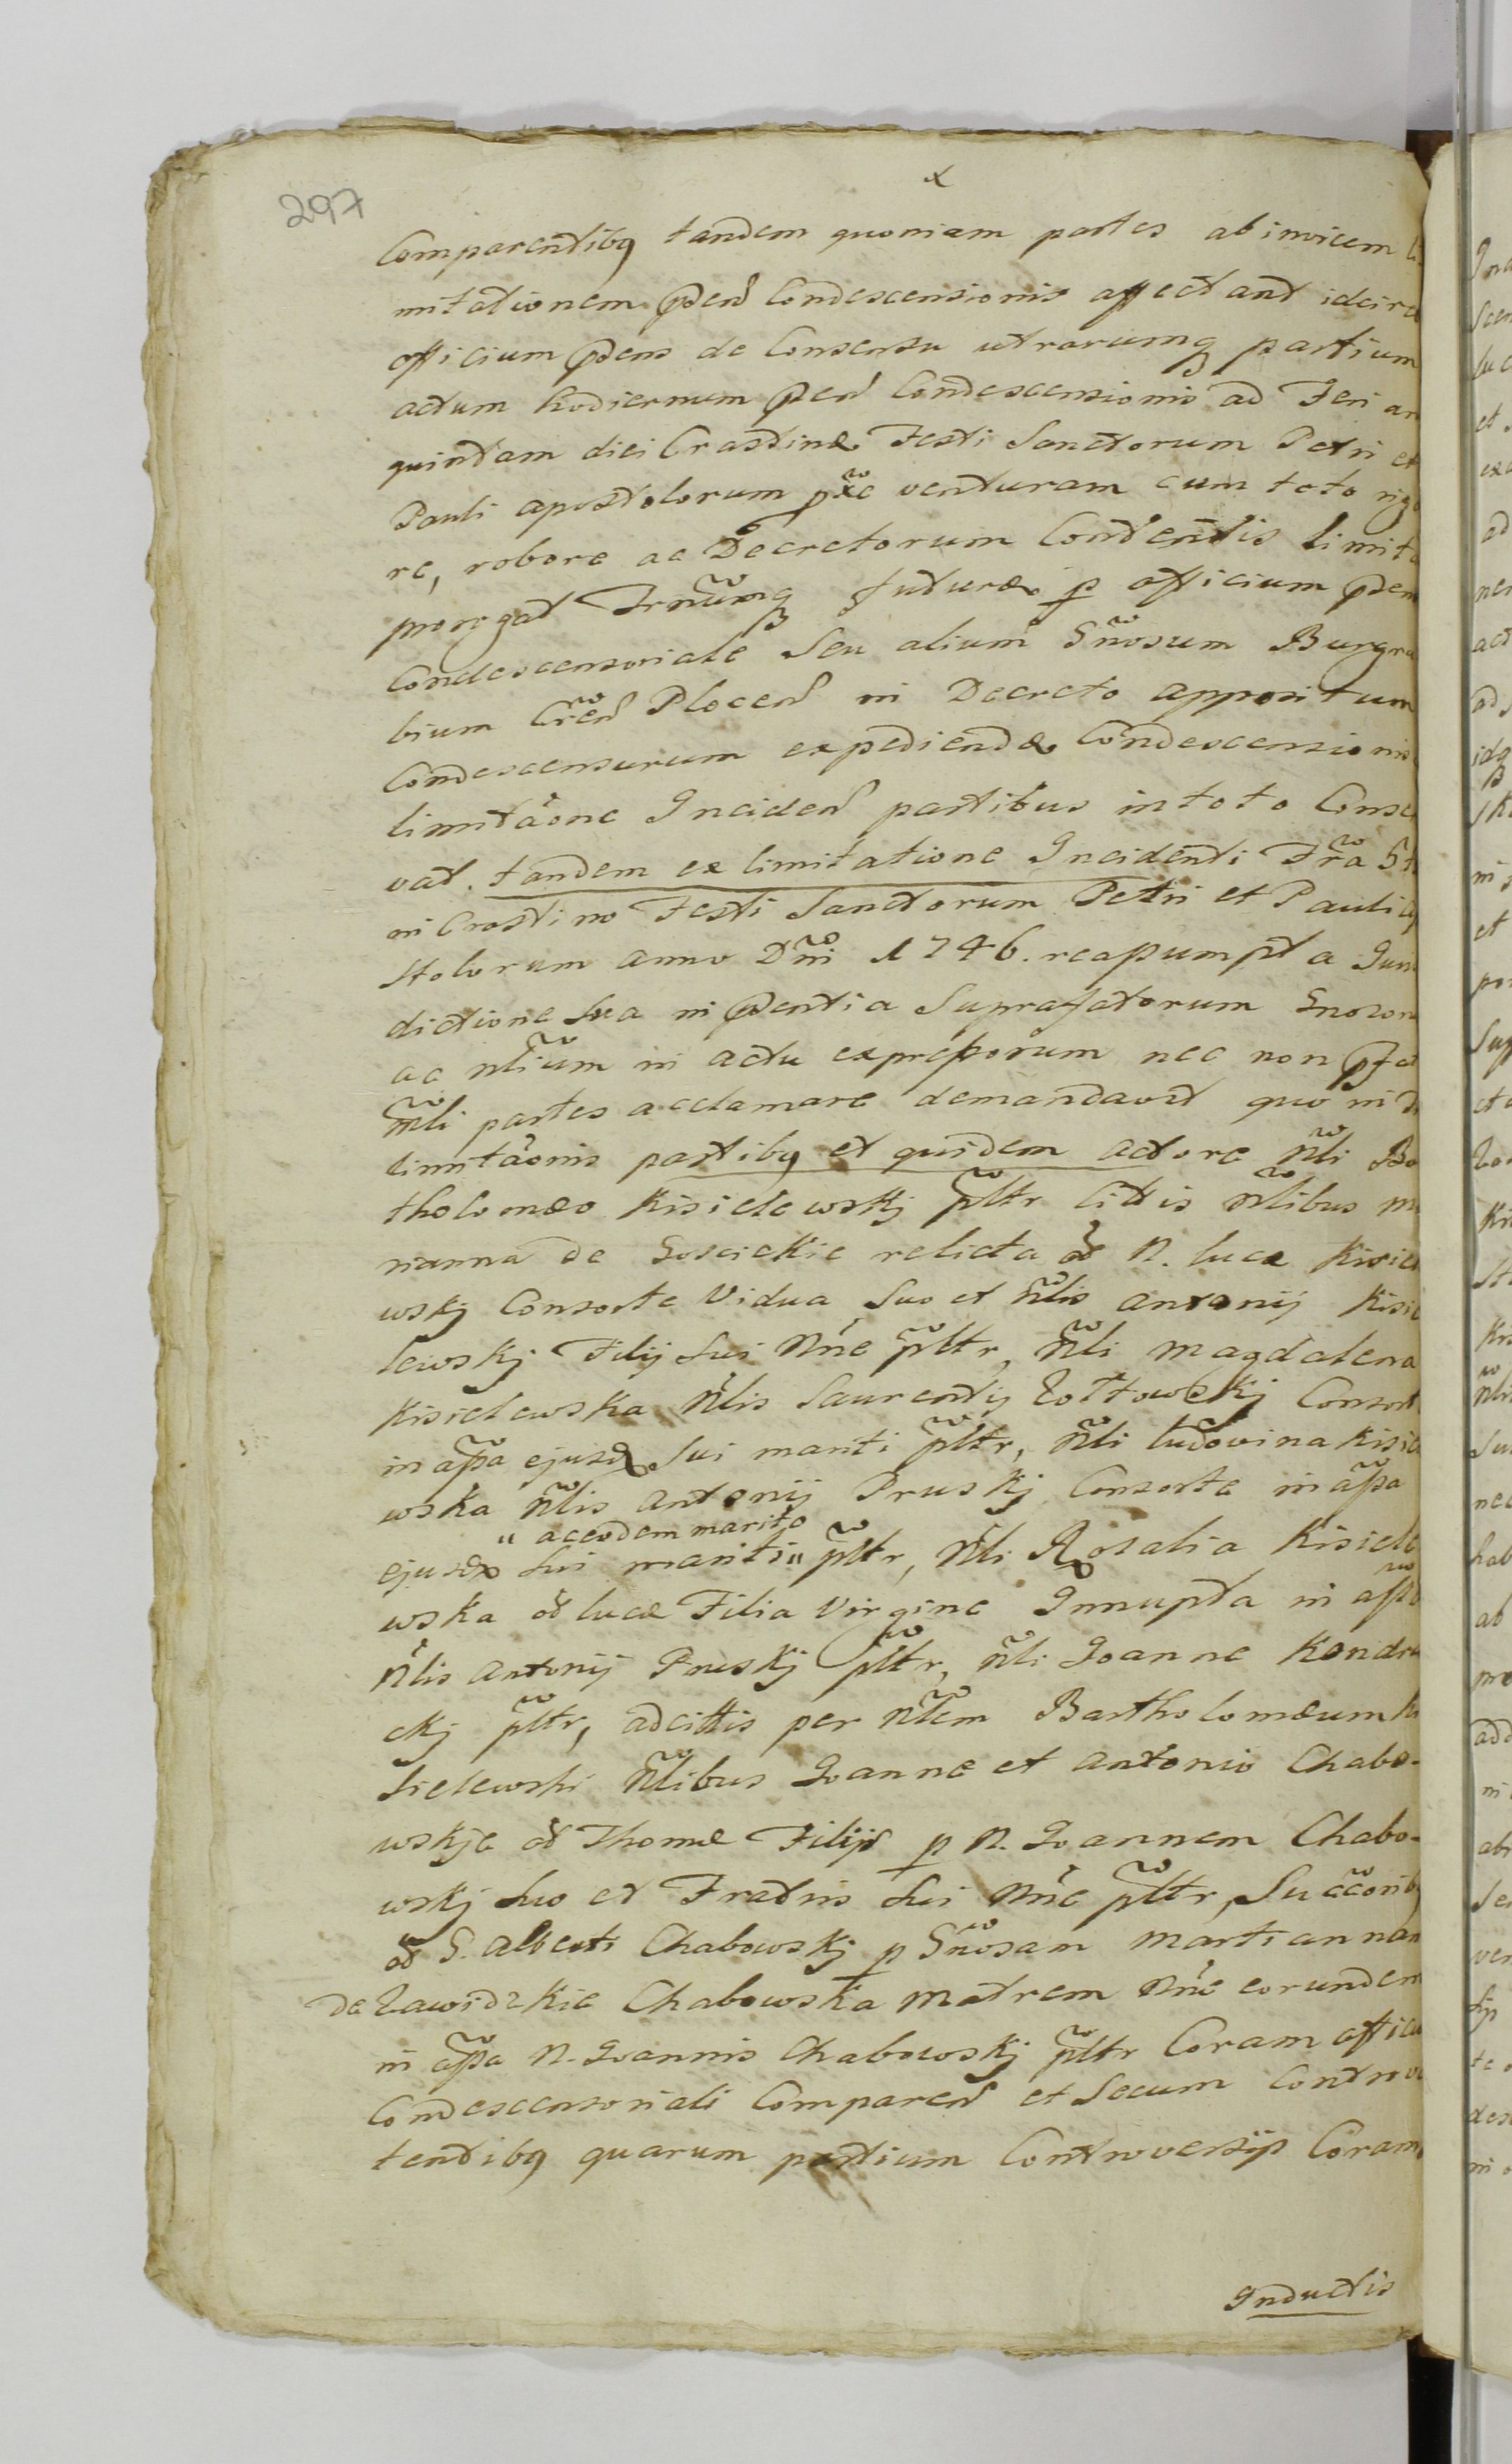 297
Comparentibq tandem quoniam partes ab invicem li
mitationem pñtis Condescensionis affectant idcirco
officium pñens de Consensu utrarumq partium
actum hodiernum pñen Condescensionis ad Feriam
quintam diei Crastinæ Festi Sanctorum Petri et
Pauli apostolorum pxe venturam cum toto rigo
re, robore ac Decretorum Contentis limita
prorogat Trnumq futuræ p officium pñens
Condescensoriale Seu alium Gñosum Burgra
bium Cren Plocen in Decreto appositum
Condescensurum expediendæ Condescensionis
limitãone Inciden partibus in toto Conser
vat. tandem ex limitatione Incidenti Fra 5t
in Crastino Festi Sanctorum Petri et Pauli ap
stolorum anno Dni 1746. reassumpt a Juris
dictione Sua in pñentia Suprafatorum Gnosor
ac nlium in actu expressorum nec non pfat
nli partes acclamare demandavit quo in
limitãonis partibq et quidem actore nli Bar
tholomæo Kisielewskj pltr cittis nlibus Ma
rianna de Goscickie relicta oð N. lucæ Kisiel
wskj Consorte Vidua Suo et nlis antonij Kisie
lewskj Filij Sui Nne pltr, nli Magdalena
Kisielewska Nlis Laurentij Zołtowskj Consorte
in assa ejusd Sui mariti pltr, nli ludovina Kisiel
wska nlis Antonij Pruskj Consorte in assa
" ac eodem marito
ejusd Sui mariti " pltr, Nli Rosalia Kisiele
wska oð lucæ Filia Virgine Innupta in assa
Nlis Antonij Pruskj pltr, nli Joanne Kendrz
ckj pltr, adcittis per Nlem Bartholomæum Ki
sielewski Nlibus Joanne et Antonio Chabo-
wskje oð Thomæ Filijs p N. Joannem Chabo-
wskj Suo et Fratris Sui Nne pltr, Succorib
oð G. Alberti Chabowskj p Gnosam Martiannam
de Zawidzkie Chabowska Matrem Nne eorundem
in assa N. Joannis Chabowskj pltr Coram officio
Condescensoriali Comparen et Secum Controver
tentibq quarum partium Controversijs Coram
Inductis